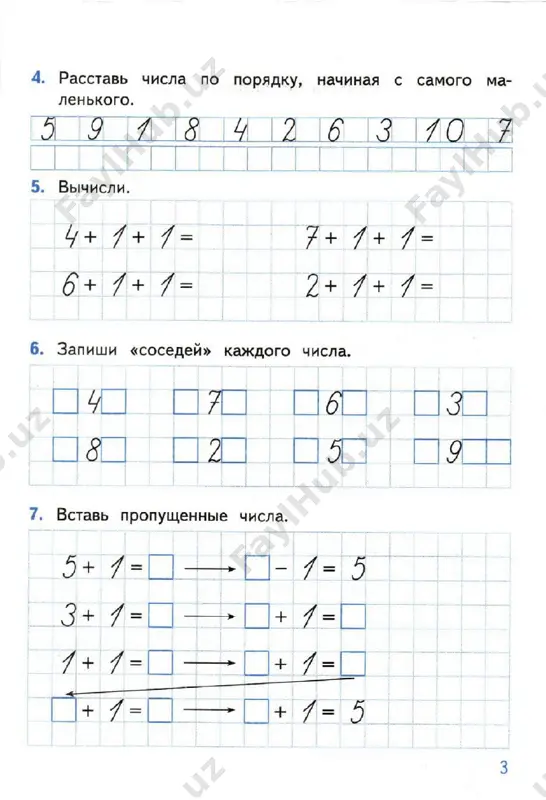 4. Расставь числа по порядку, начиная с самого ма-
ленького.
5 9 1 8 4 2 6 3 10 7
5. Вычисли.
4 + 1 + 1 = 7 + 1 + 1 =
6 + 1 + 1 = 2 + 1 + 1 =
6. Запиши «соседей» каждого числа.
□ 4 □ □ 7 □ □ 6 □ □ 3 □
□ 8 □ □ 2 □ □ 5 □ □ 9 □□
7. Вставь пропущенные числа.
5 + 1 = □ → □ - 1 = 5
3 + 1 = □ → □ + 1 = □
1 + 1 = □ → □ + 1 = □
□ + 1 = □ → □ + 1 = 5
3
FaylHub.uz
FaylHub.uz
FaylHub.uz
uz
uz